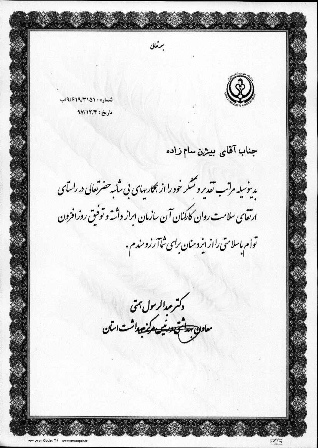 بسمه تعالی
شماره: ۹۶۱۹/۳۱۵۱/ب
تاریخ: ۹۷/۱۲/۴
جناب آقای بیژن سام زاده
بدینوسیله مراتب تقدیر و تشکر خود را از همکاریهای بی شائبه حضرتعالی در راستای
ارتقای سلامت روان کارکنان آن سازمان ابراز داشته و توفیق روزافزون
توأم با سلامتی را از ایزد منان برای شما آرزومندم.
دکتر عبدالرسول همتی
معاون بهداشتی و رئیس مرکز بهداشت استان